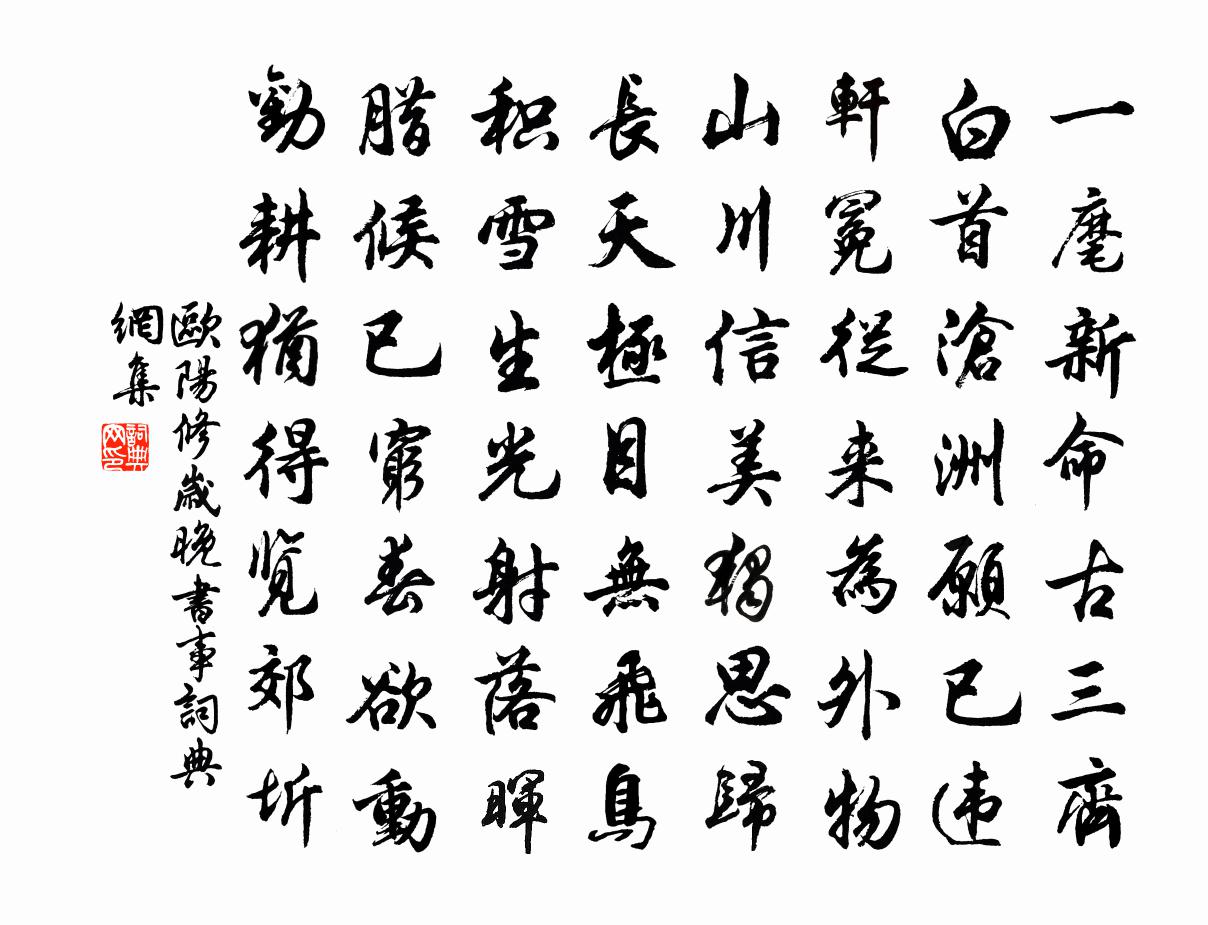 一麾新命古三齊
白首滄洲願已违
軒冕從来為外物
山川信美独思歸
長天極目無飛鳥
积雪生光射落暉
腊候已窮春欲動
勸耕猶得览郊圻
歐陽修歲晚書事詞典
網集
詞典
网印